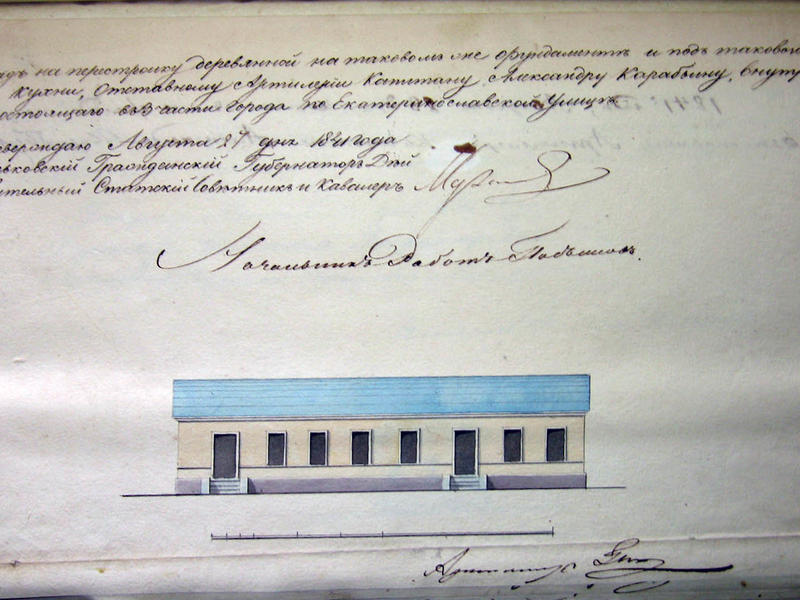 на перестройку деревянной на таковомъ же фундаментѣ и подъ таковою
кухни, отставному Артилеріи Капитану Александру Карабьину, внутр
стоящаго въ 3 части города по Екатеринославской Улицѣ
верждаю Августа 27 дня 1841 года
ьковскій Гражданскій Губернаторъ Дѣй
вительный Статскій Совѣтникъ и Кавалеръ
Начальникъ Работъ
Архитекторъ